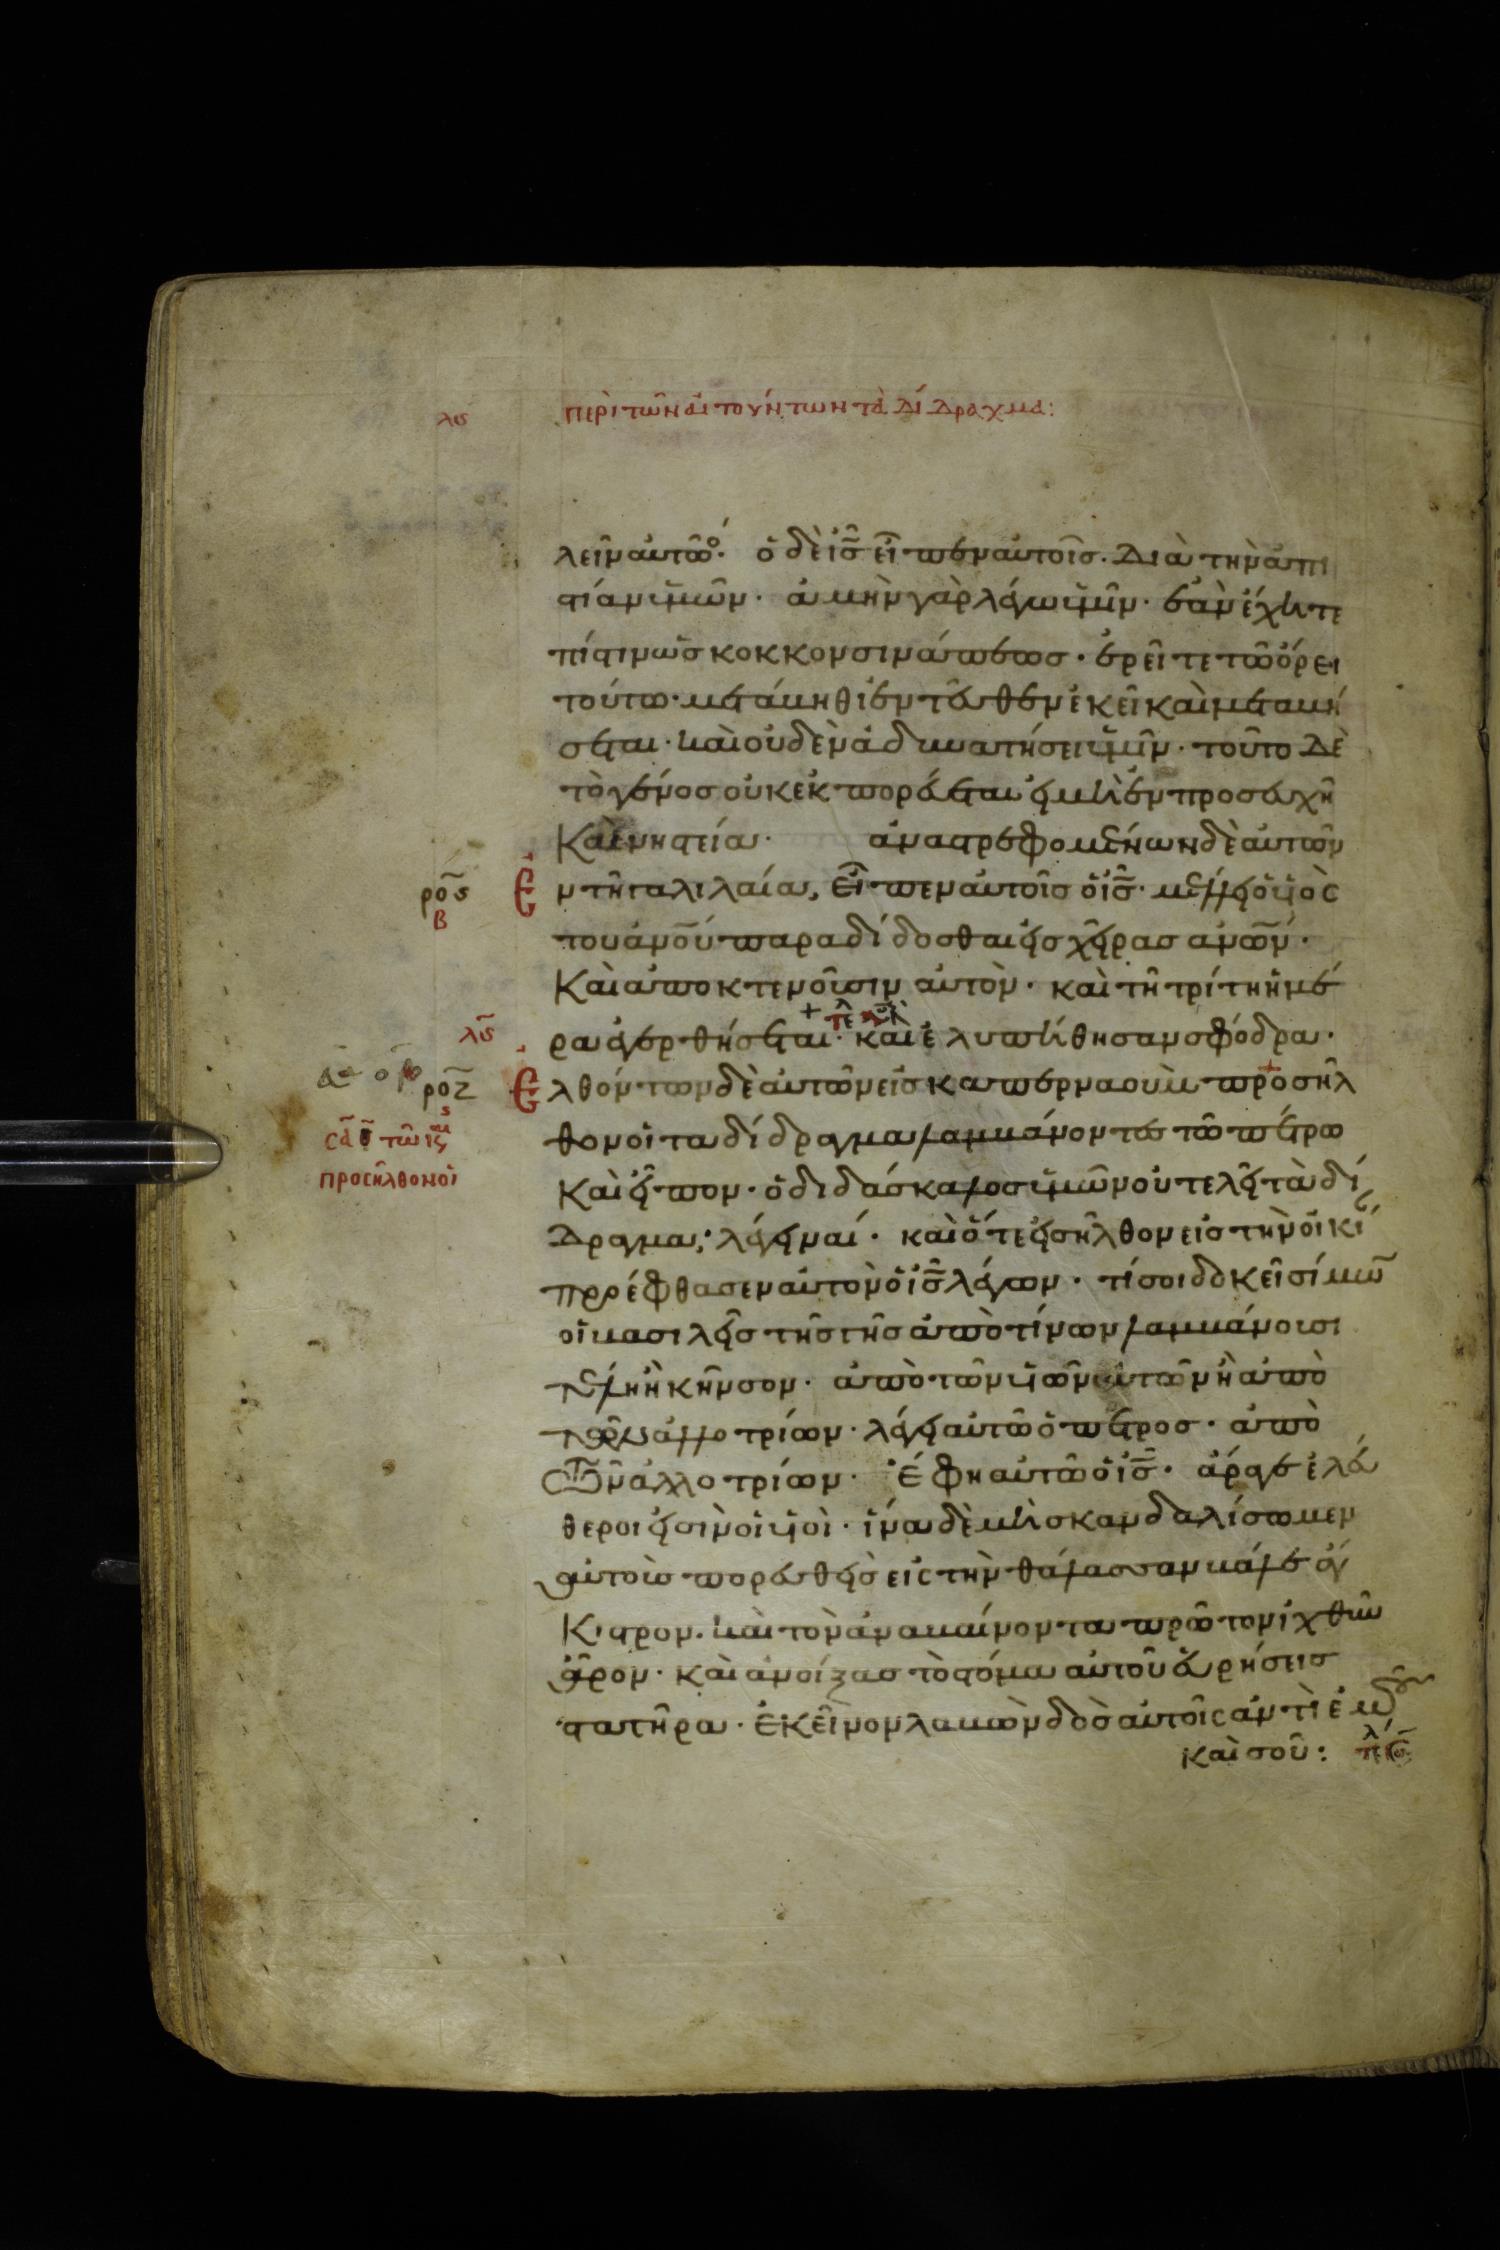 λς περὶ τῶν αἰτούντων τὰ δίδραχμα:
λεῖν αυτὸ· ὁ δὲ ις̅ εἶπεν αυτοῖσ. Δια τὴν ἀπι
στίαν ὑμῶν· ἀμὴν γὰρ λέγω ὑμῖν· ἐὰν ἔχητε
πίστιν ὡσ κόκκον σινάπεωσ· ἐρεῖτε τῶ ὄρει
τούτω· μετάβηθι ἐντεῦθεν ἐκεῖ καὶ μεταβή
σεται· καὶ οὐδὲν ἀδυνατήσει ὑμῖν· τοῦτο Δὲ
τὸ γένοσ οὐκ ἐκπορεύεται εἰ μὴ ἐν προσευχῆ
Καὶ νηστεία· ἀναστρεφομένων δὲ αὐτῶν
ρος̅ Ε
β
ν τῆ γαλιλαία, εἶπεν αυτοῖσ ὁ ις̅· μέλλει ὁ υἱὸσ
του ἀνου̅ παραδίδοσθαι εἰσ χεῖρασ ἀνων̅·
Καὶ ἀποκτενοῦσιν αυτὸν· καὶ τῆ τρίτη ἡμέ
λς̅
ρα ἐγερθήσεται· καὶ ἐλυπήθησαν σφόδρα·
ροζ̅ Ε
ς
λθόντων δὲ αὐτῶν εἰσ καπερναοὺμ προσῆλ
θον οἱ τα δίδραγμα λαμβάνοντεσ τῶ πέτρω
προσῆλθον οἱ
Καὶ εἶπον· ὁ διδάσκαλοσ ὑμῶν οὐ τελεῖ τὰ δί
Δραγμα; λέγει ναί· καὶ ὅτε εἰσῆλθον εἰσ τὴν οἰκί
προέφθασεν αὐτὸν ὁ ις̅ λέγων· τί σοι δοκεῖ σίμων̅
οἱ βασιλεῖσ τῆσ γῆσ ἀπὸ τίνων λαμβάνουσι
τέλη ἢ κῆνσον· ἀπὸ τῶν υἱῶν αυτῶν ἢ ἀπὸ
τῶν ἀλλοτρίων· λέγει αὐτῶ ὁ πέτροσ· ἀπὸ
τῶν ἀλλοτρίων· ἔφη αὐτῶ ὁ ις̅· ἄραγε ἐλεύ
θεροι εἰσὶν οἱ υἱοὶ· ἵνα δὲ μὴ σκανδαλίσωμεν
αὐτοὺσ πορευθεὶσ εἰσ τὴν θάλασσαν βάλε ἄγ
Κιστρον. καὶ τὸν ἀναβαίνοντα πρῶτον ἰχθῦν
ἆρον· καὶ ἀνοίξασ τὸ στόμα αὐτοῦ εὑρήσεισ
στατῆρα· ἐκεῖνον λαβὼν δὸσ αὐτοῖσ ἀντὶ ἐμοῦ
καὶ σοῦ: